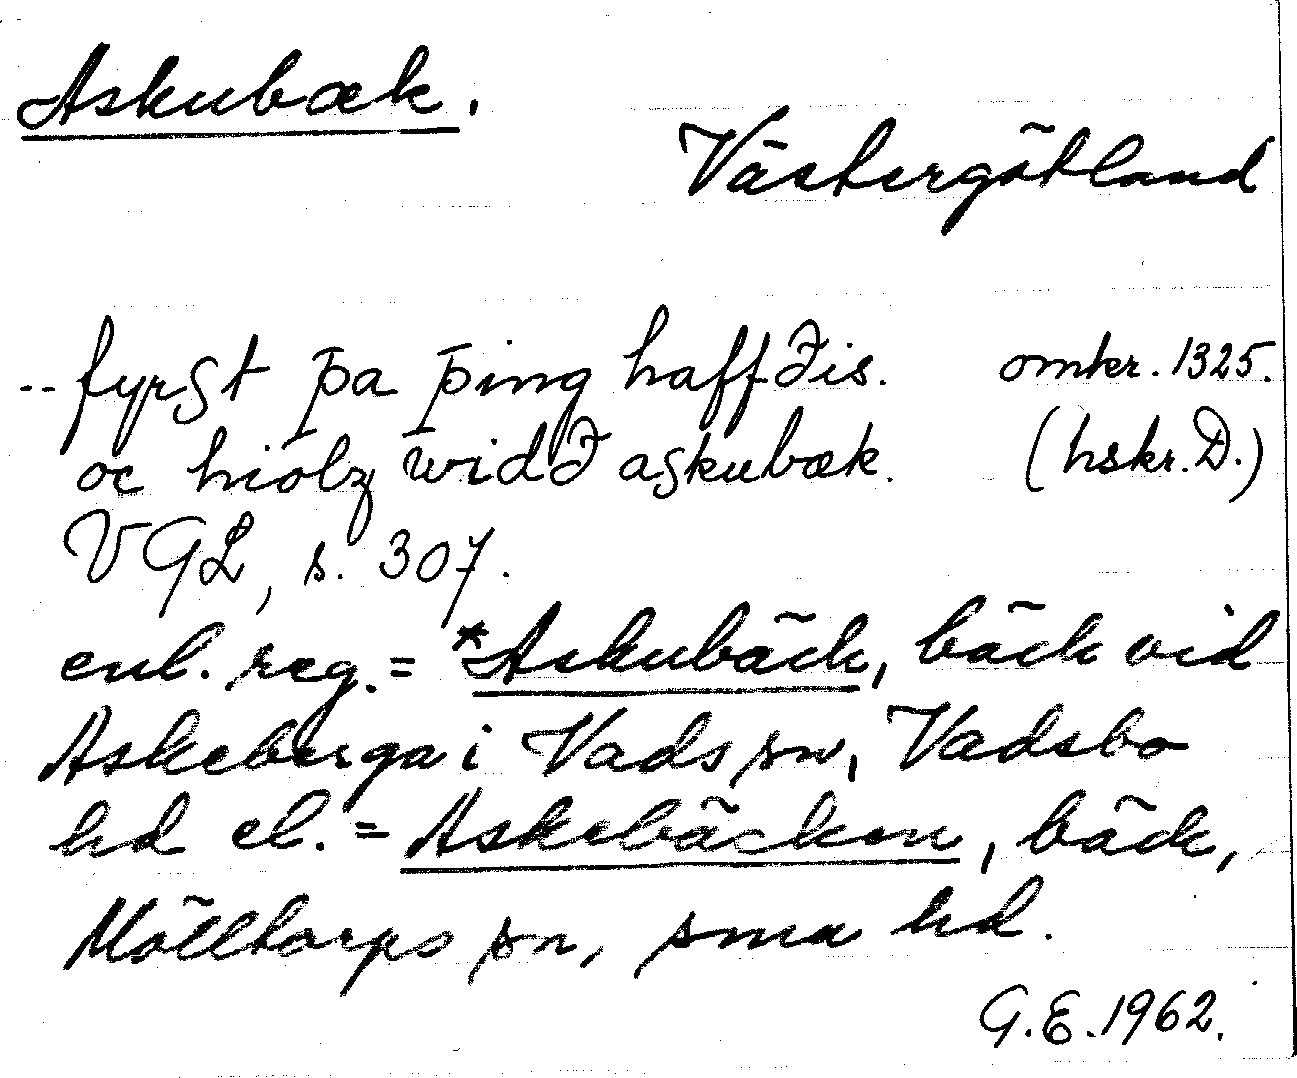 Askubæk.
Västergötland
-- fyrst þa þing haffðis. omkr. 1325.
oc hiolz widð askubæk. (hskr. D.)
VGL, s. 307.
enl. reg. = *Askubäck, bäck vid
Askeberga i Vads sn, Vadsbo
hd el. = Askebäcken, bäck,
Mölltorps sn, sma hd.
G.E. 1962.